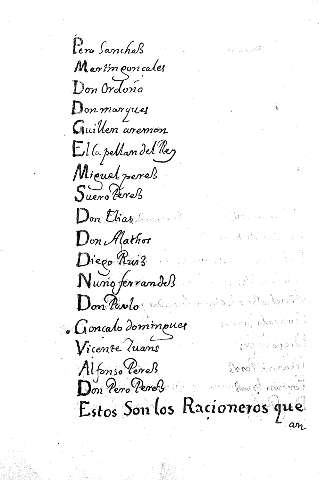 Pero Sanches
Martin gonçales
Don Ordoño
Don marques
Guillen aremon
El Capellan del Rey
Miguel peres
Suero Peres
Don Elias
Don Mathos
Diego Ruis
Nuño ferrandes
Don Paulo
Gonçalo domingues
Vicente Iuans
Alfonso Peres
Don Pero Peres
Estos Son los Raçioneros que
an